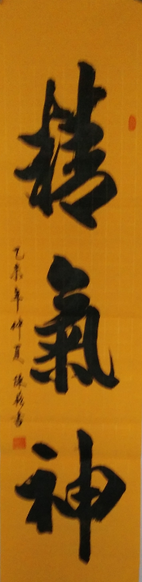 精氣神
乙未年仲夏